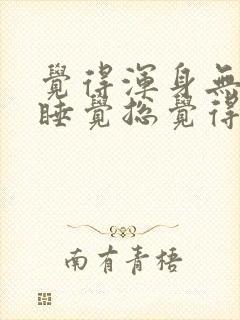 覺得渾身無
睡覺總覺得
南有青梧